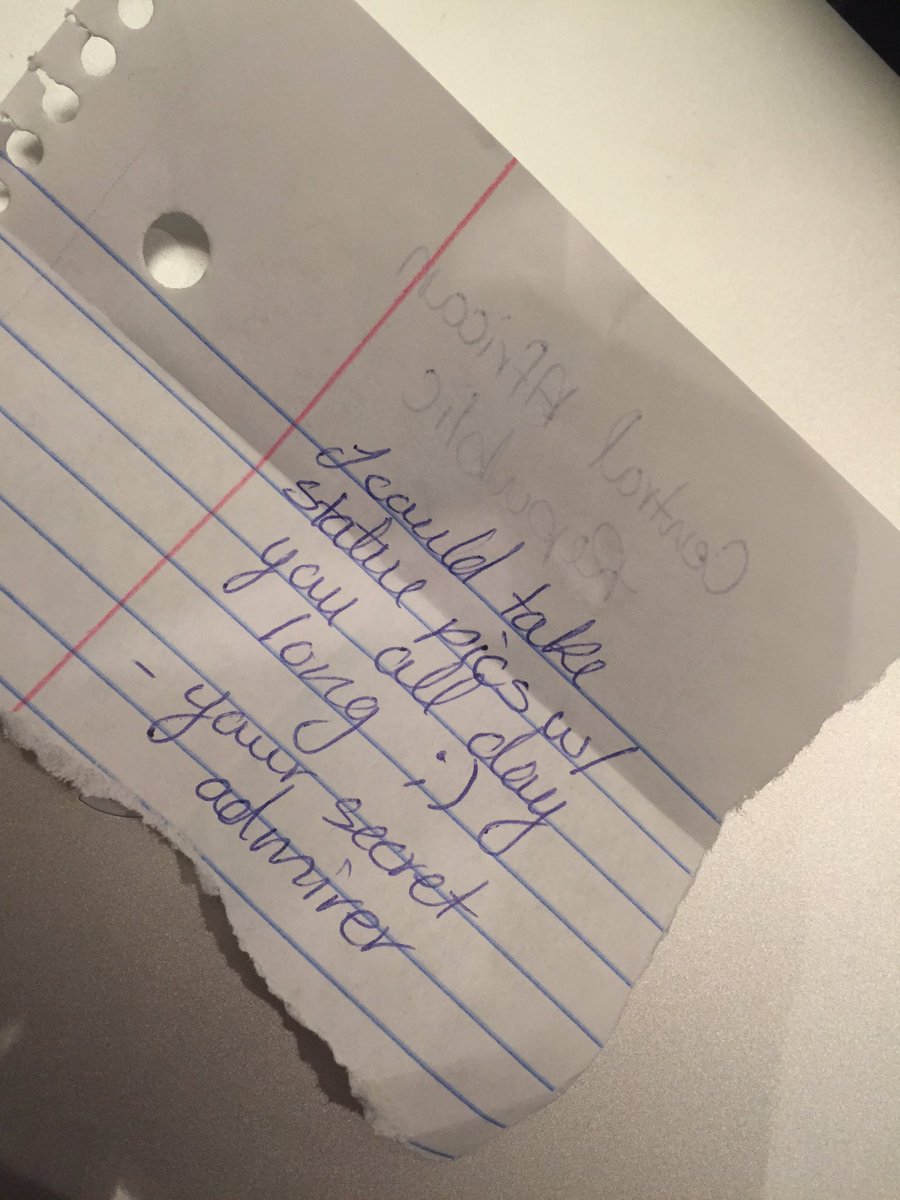 I could take
statue pics w/
you all day
long ;)
- your secret
admirer
Central African
Republic